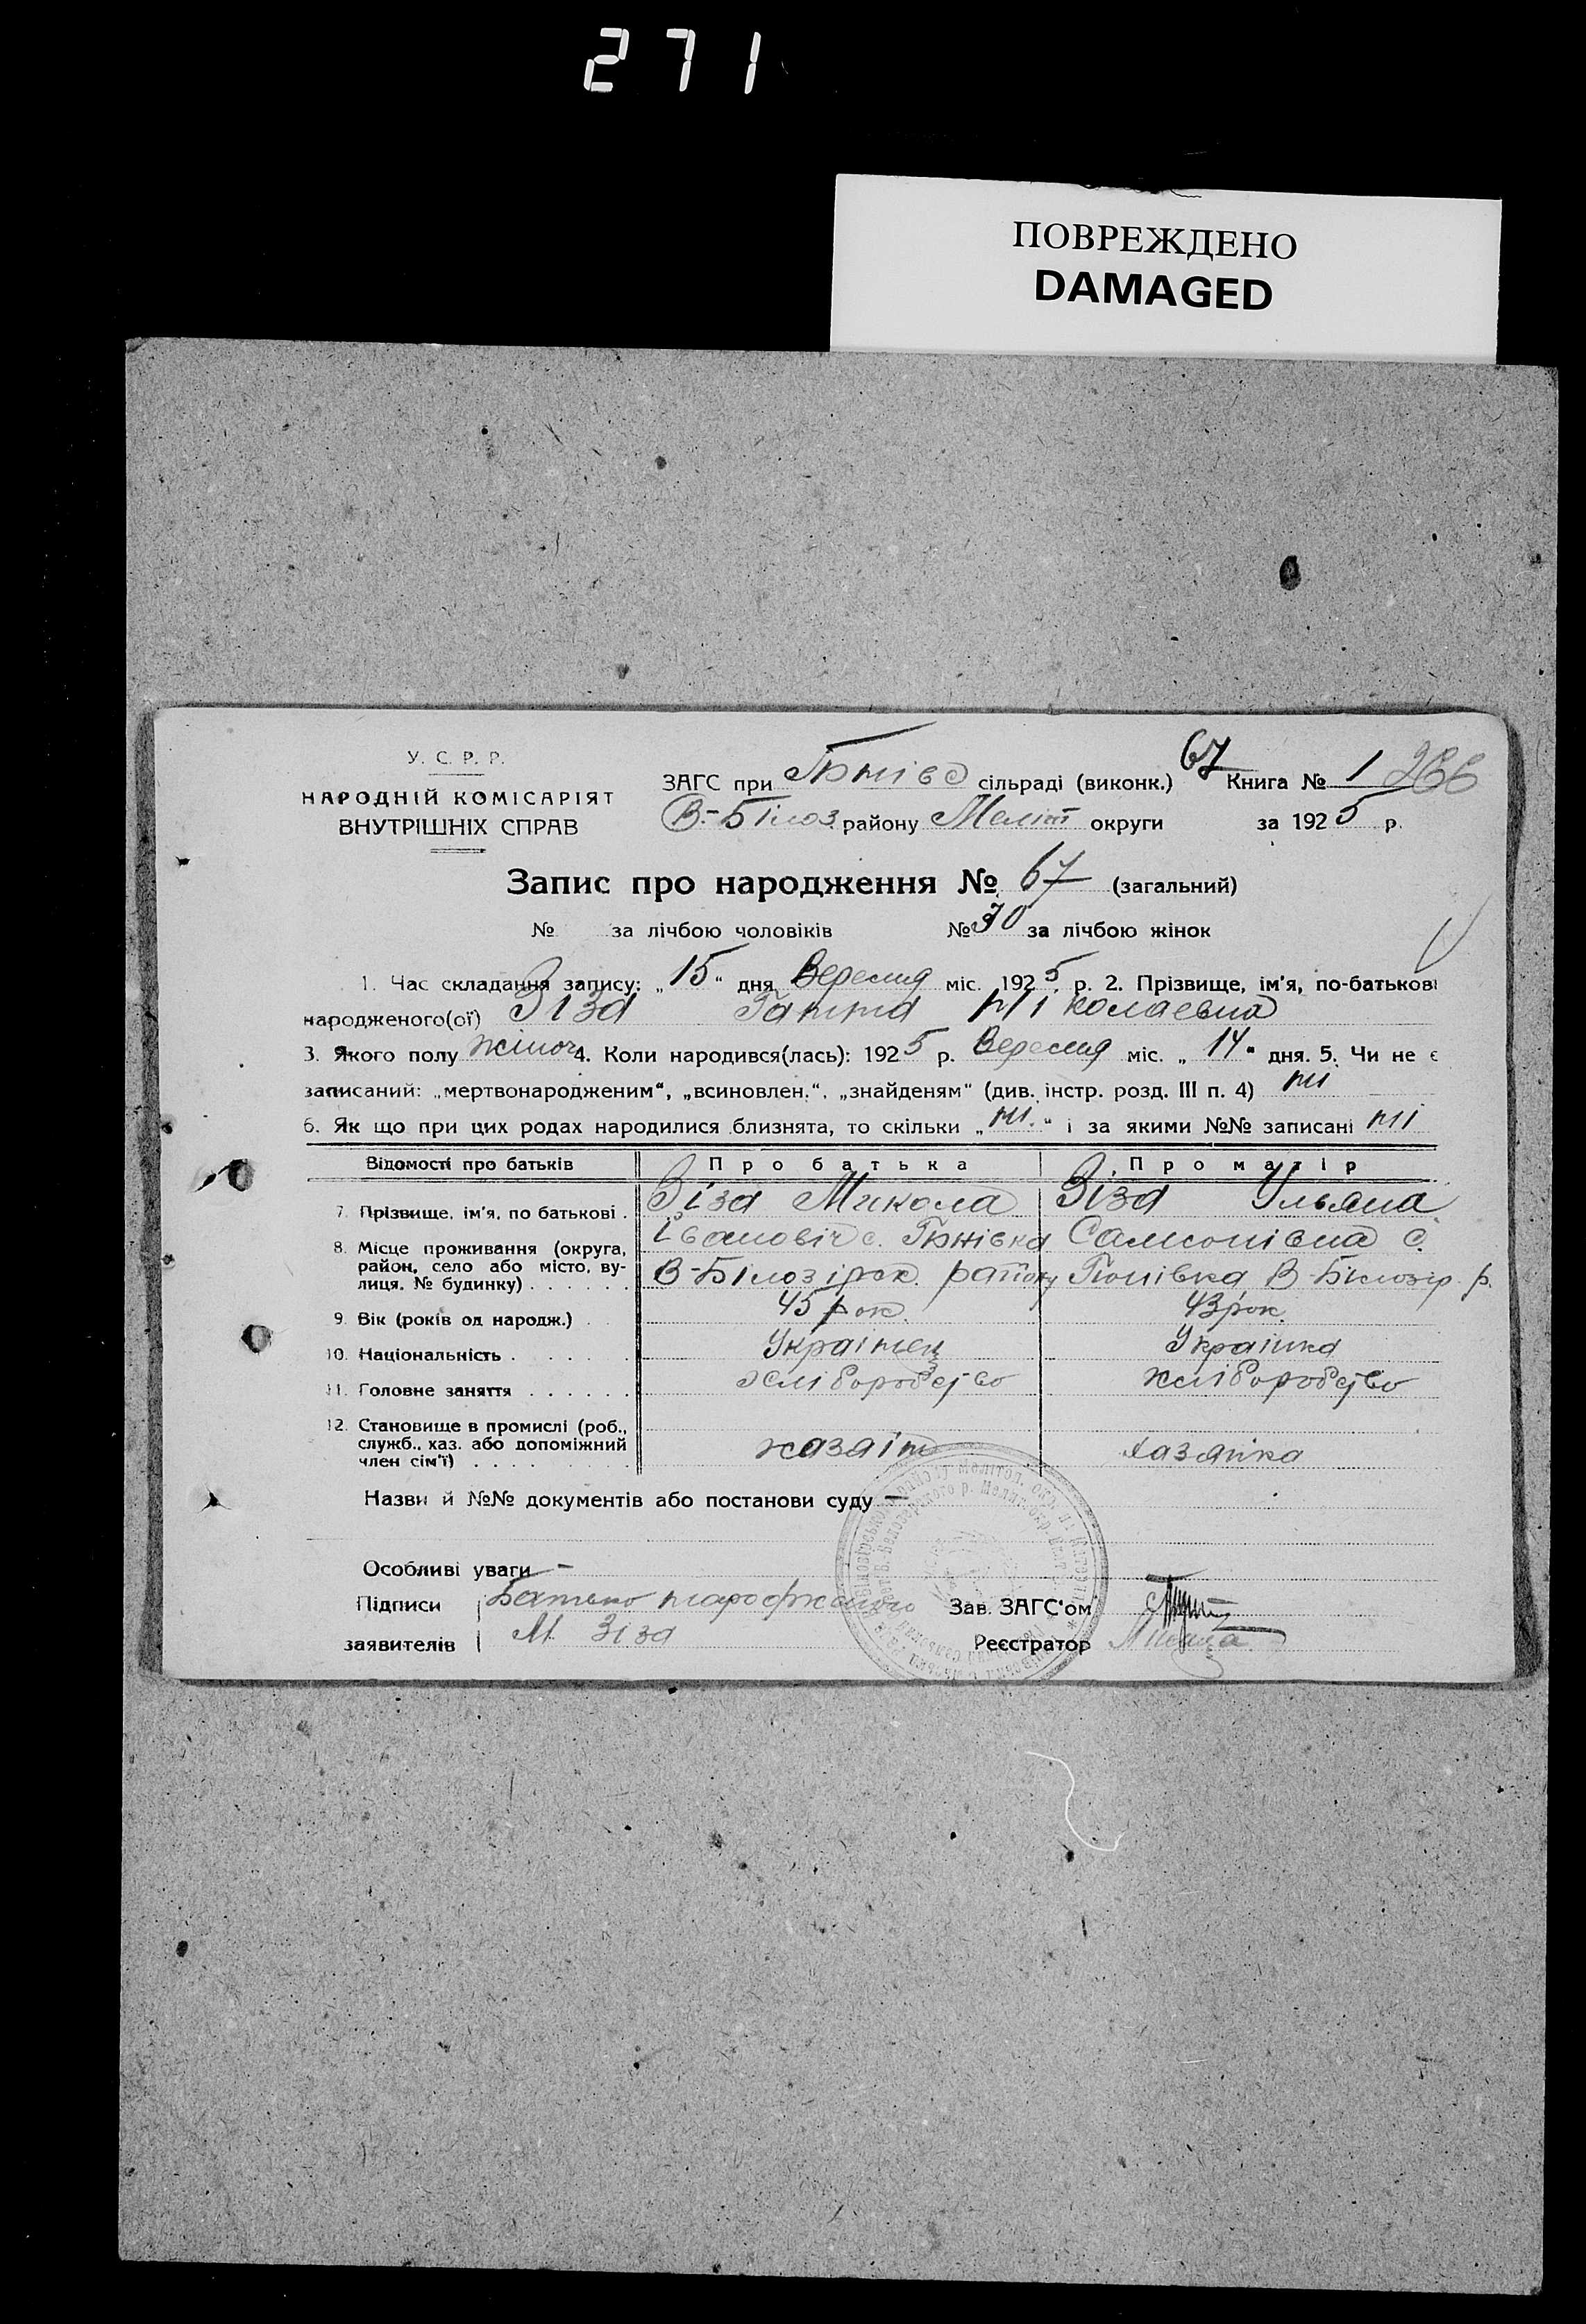 271
ПОВРЕЖДЕНО
DAMAGED
У. С. Р. Р.
НАРОДНІЙ КОМІСАРІЯТ
ВНУТРІШНІХ СПРАВ
67
ЗАГС при сільраді (виконк.) Книга № 1 266
В.-Білоз. району Меліт округи за 1925 р.
Запис про народження № 67 (загальний)
№ за лічбою чоловіків № 30 за лічбою жінок
1. Час складання запису: „15“ дня Вересня міс. 1925 р. 2. Прізвище, ім'я, по-батькові
народженого(ої) Зіза Ганна Ніколаевна
3. Якого полу жіноч 4. Коли народився(лась): 1925 р. Вересня міс. „14“ дня. 5. Чи не є
записаний: „мертвонародженим“, „всиновлен.“, „знайденям“ (див. інстр. розд. III п. 4) ні
6. Як що при цих родах народилися близнята, то скільки „ні.“ і за якими №№ записані ні
Відомості про батьків Про батька Про матір
7. Прізвище, ім'я, по батькові . Зіза Микола Зіза Ульяна
Івановіч с. Самсонівна с.
8. Місце проживання (округа,
район, село або місто, ву-
лиця, № будинку) . . . . . . В-Білозірск. району В-Білозір. р.
9. Вік (років од народж.) . . 45 рок. 43 рок.
10. Національність . . . . . Українец Українка
11. Головне заняття . . . . . . хліборобство хліборобство
12. Становище в промислі (роб.,
служб., хаз. або допоміжний
член сім'ї) . . . . . . . . хазяін хазяйка
Назви й №№ документів або постанови суду —
Особливі уваги —
Підписи Батько народженого Зав. ЗАГС'ом
заявителів М Зіза Реєстратор